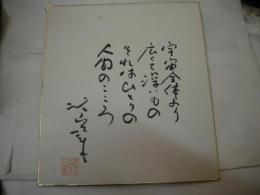 宇宙全体より
広くて深いもの
それはひとりの
人間のこころ